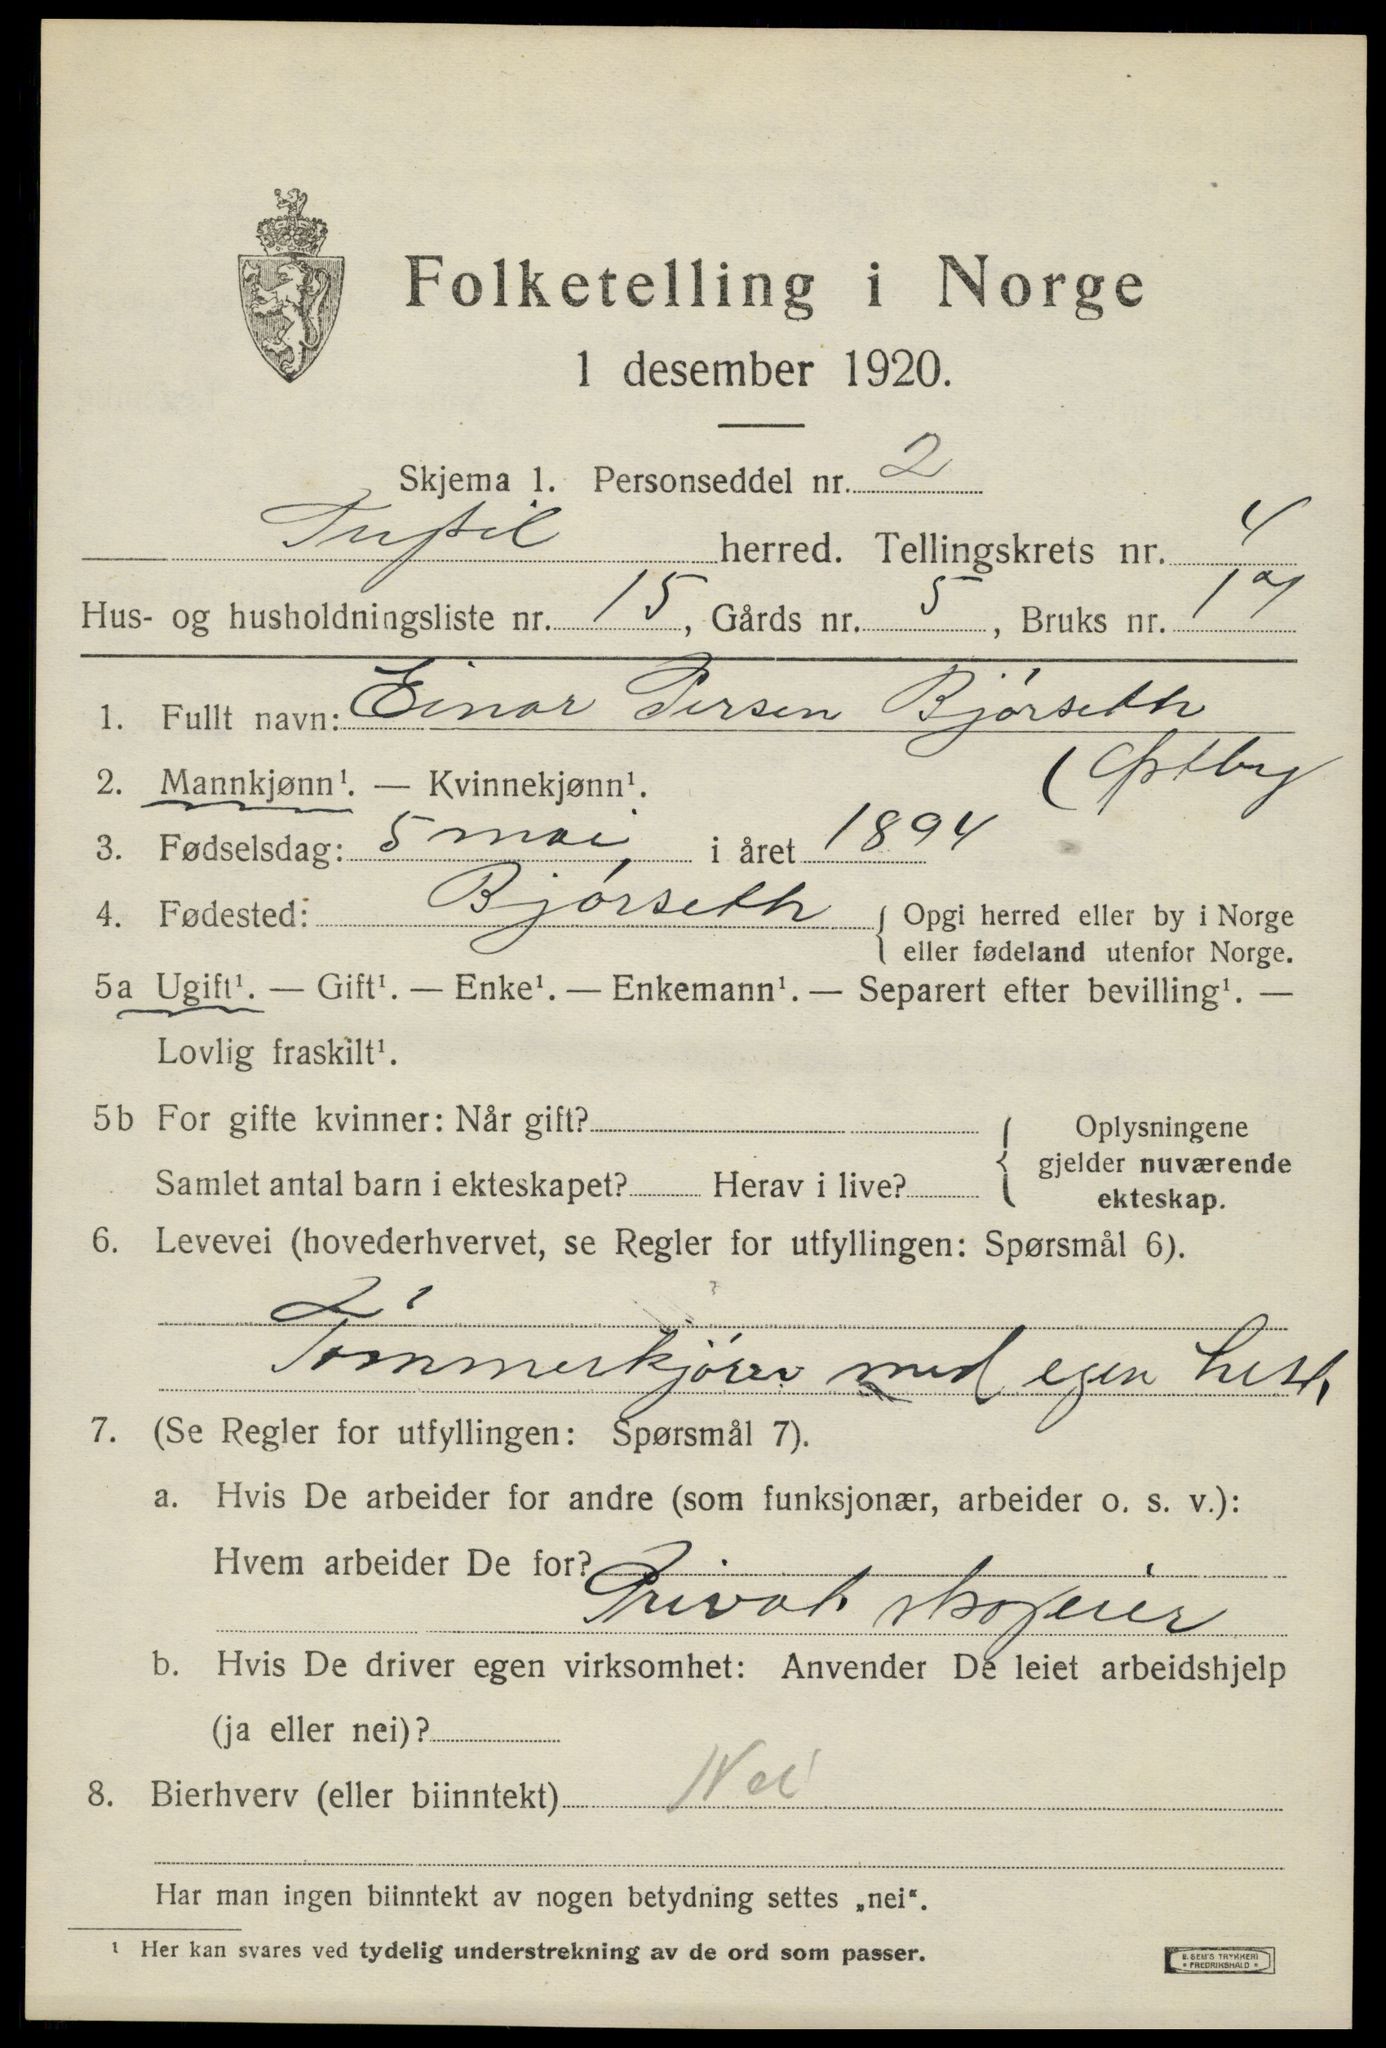 Folketelling i Norge
1 desember 1920.
Skjema 1. Personseddel nr. 2
Trysil herred. Tellingskrets nr. 4
Hus- og husholdningsliste nr. 15, Gårds nr. 5, Bruks nr.
1. Fullt navn: Einar Persen Bjørseth
(Østby
2. Mannkjønn¹. — Kvinnekjønn¹.
3. Fødselsdag: 5 mai, i året 1894
4. Fødested: Bjørseth { Opgi herred eller by i Norge
eller fødeland utenfor Norge.
5a Ugift¹. — Gift¹. — Enke¹. — Enkemann¹. — Separert efter bevilling¹. —
Lovlig fraskilt¹.
5b For gifte kvinner: Når gift? { Oplysningene
gjelder nuværende
Samlet antal barn i ekteskapet? Herav i live? ekteskap.
6. Levevei (hovederhvervet, se Regler for utfyllingen: Spørsmål 6).
Tømmerkjører med egen hest.
7. (Se Regler for utfyllingen: Spørsmål 7).
a. Hvis De arbeider for andre (som funksjonær, arbeider o. s. v.):
Hvem arbeider De for?
Privat skogeier
b. Hvis De driver egen virksomhet: Anvender De leiet arbeidshjelp
(ja eller nei)?
8. Bierhverv (eller biinntekt) Nei
Har man ingen biinntekt av nogen betydning settes „nei“.
¹ Her kan svares ved tydelig understrekning av de ord som passer.
E. SEM'S TRYKKERI
* FREDRIKSHALD *